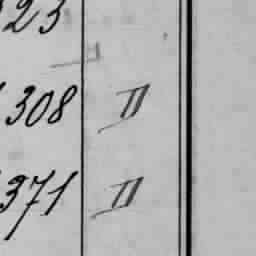 23
308 II
371 II